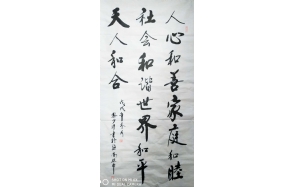 人心和善家庭和睦
社会和谐世界和平
天人和合